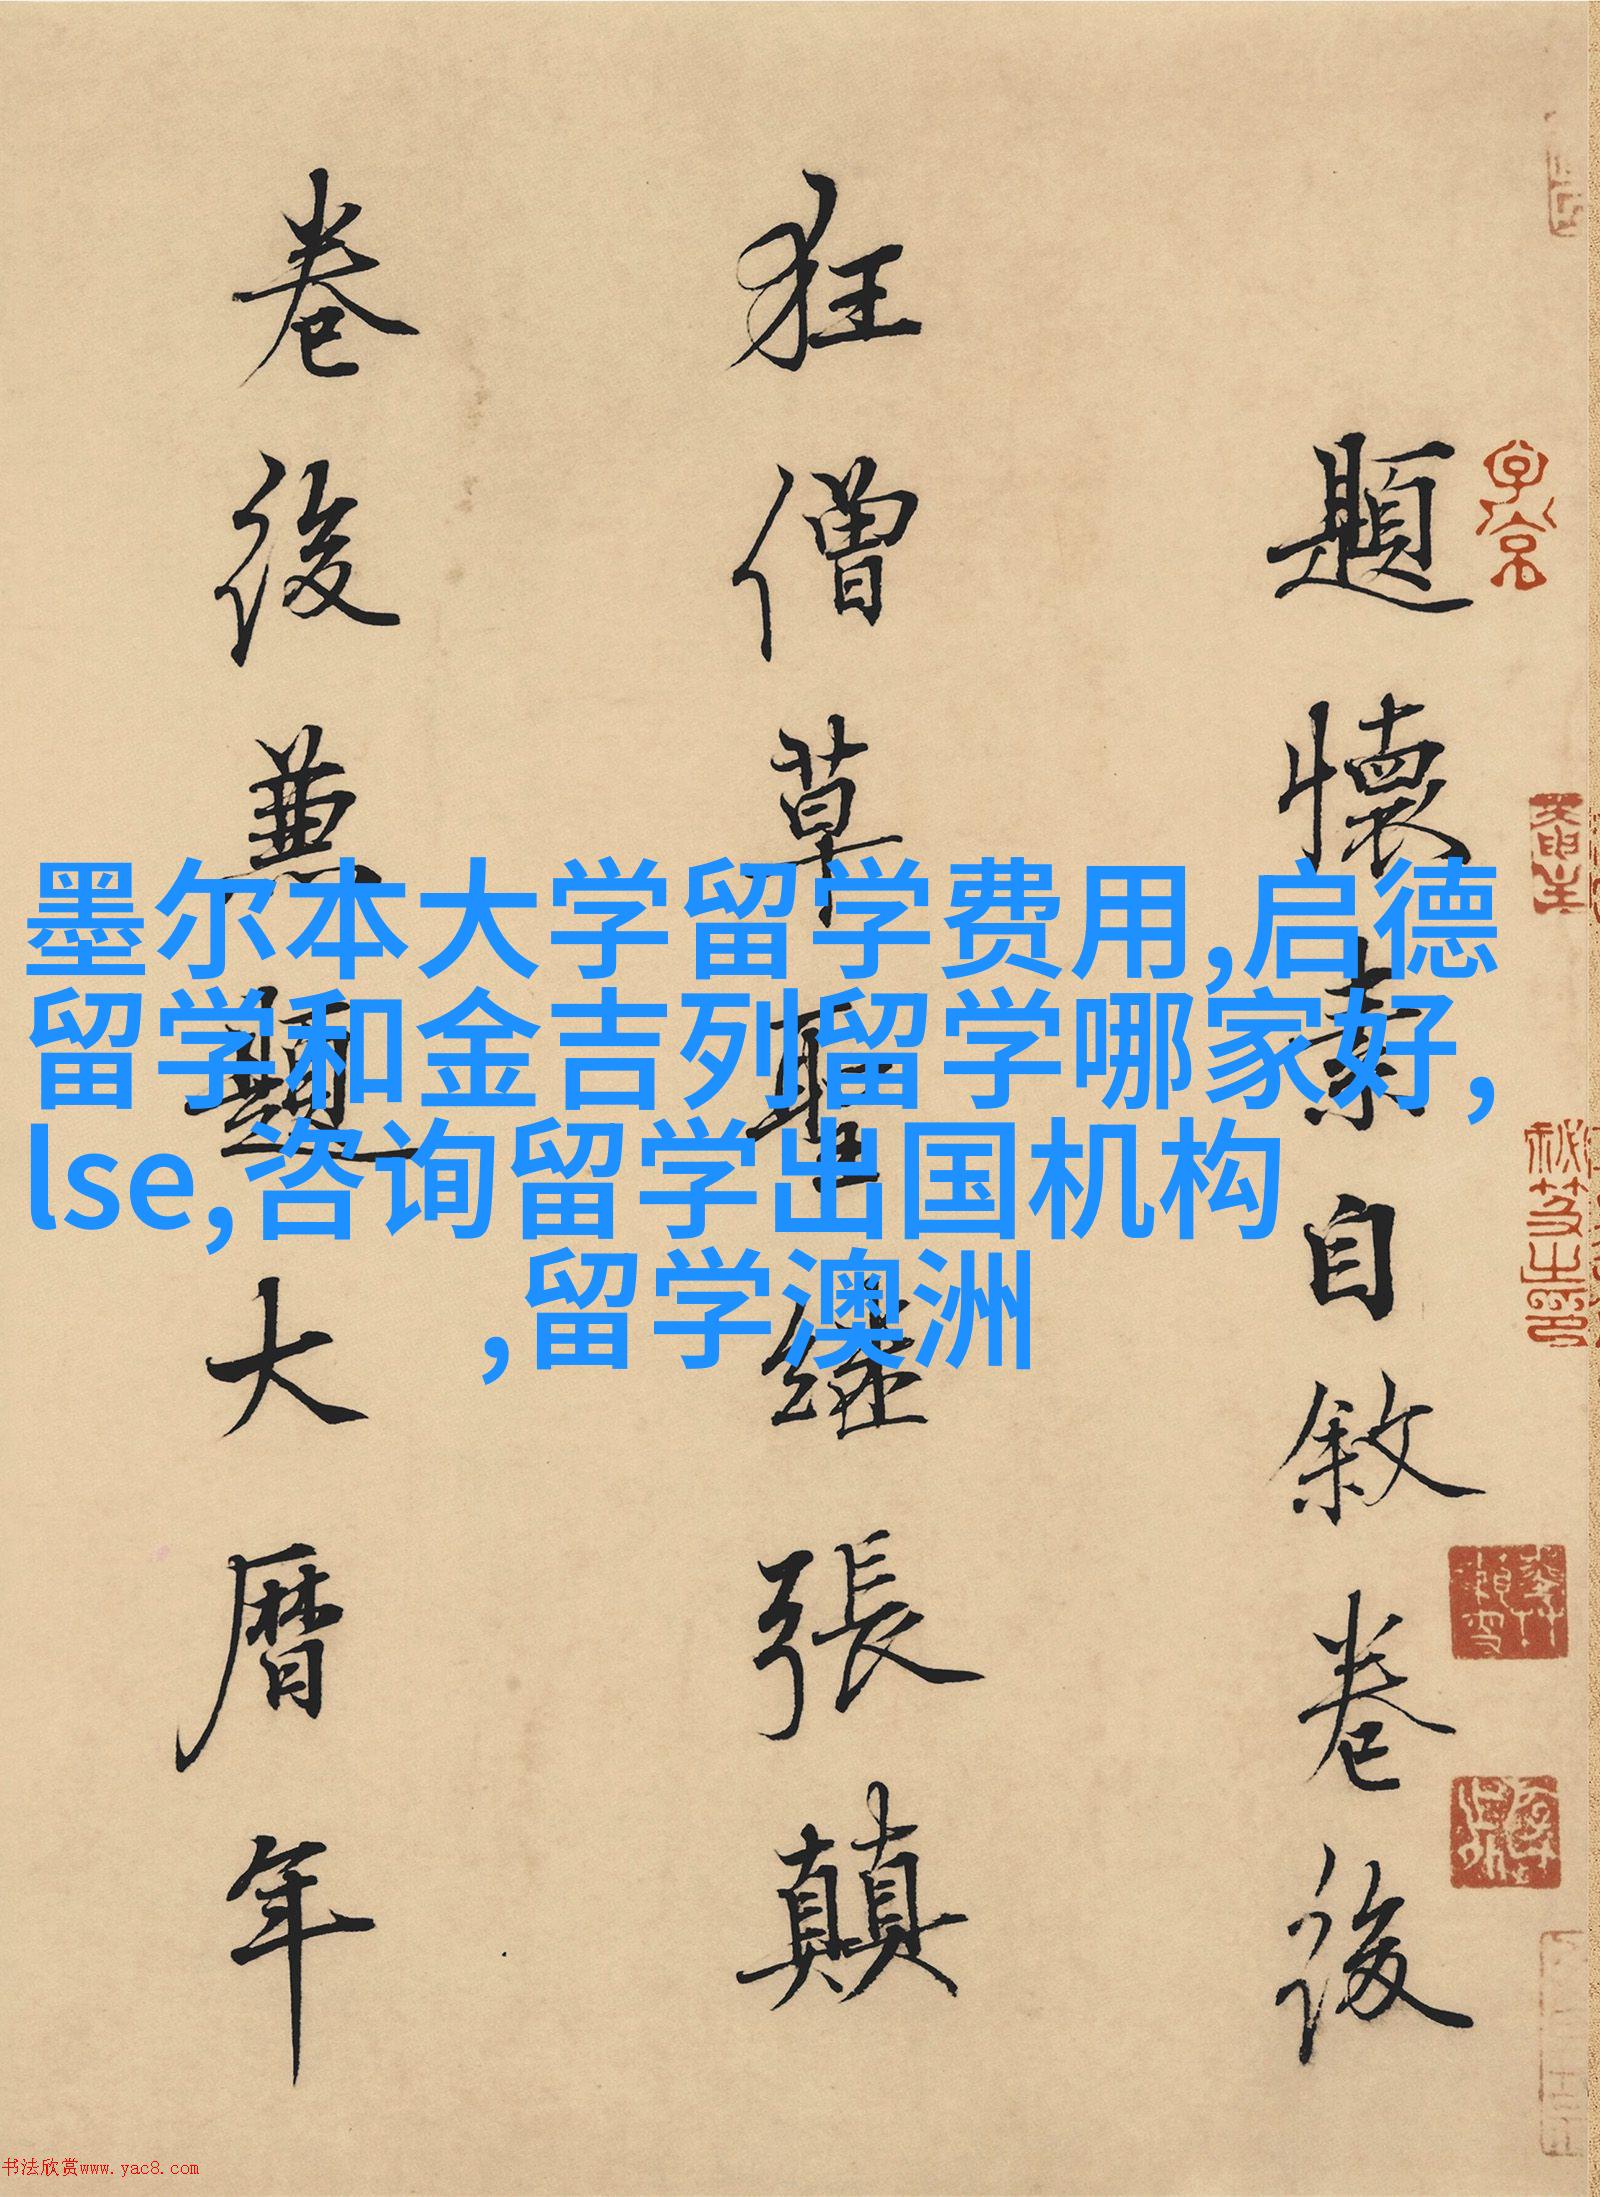 題懷素自敘卷後
狂僧草聖繼張顛
卷後兼題大曆年
墨尔本大学留学费用,启德
留学和金吉列留学哪家好,
lse,咨询留学出国机构
,留学澳洲
书法欣赏www.yac8.com